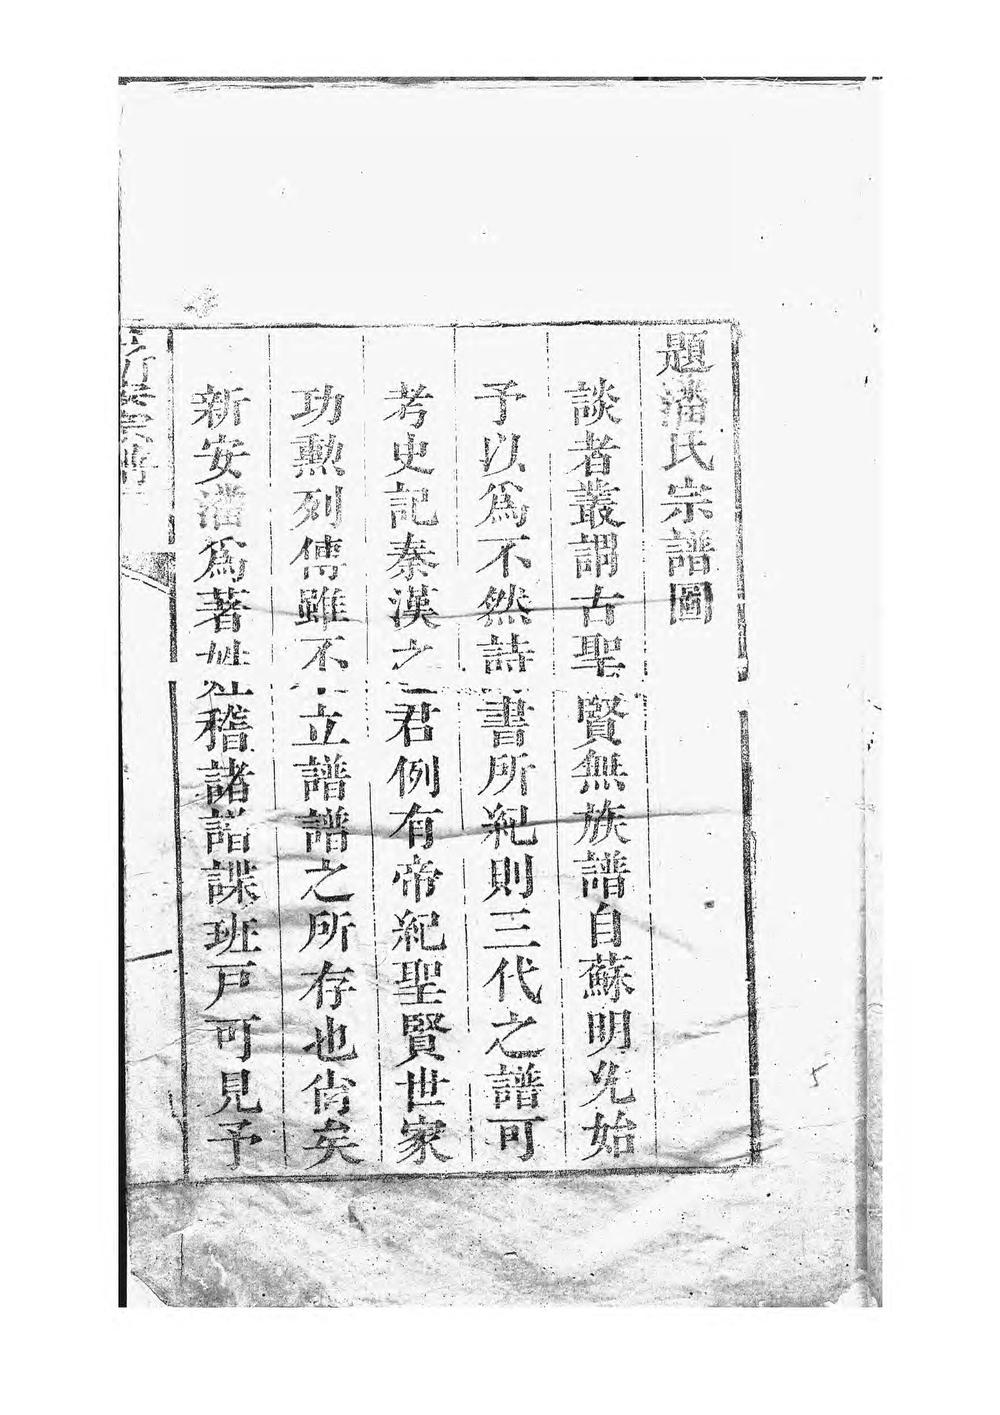 題潘氏宗譜圖
談者叢謂古聖賢無族譜自蘇明允始
予以爲不然詩書所紀則三代之譜可
考史記秦漢之君例有帝紀聖賢世家
功勲列傳雖不立譜譜之所存也尚矣
新安潘爲著姓稽諸譜諜班戸可見予
5